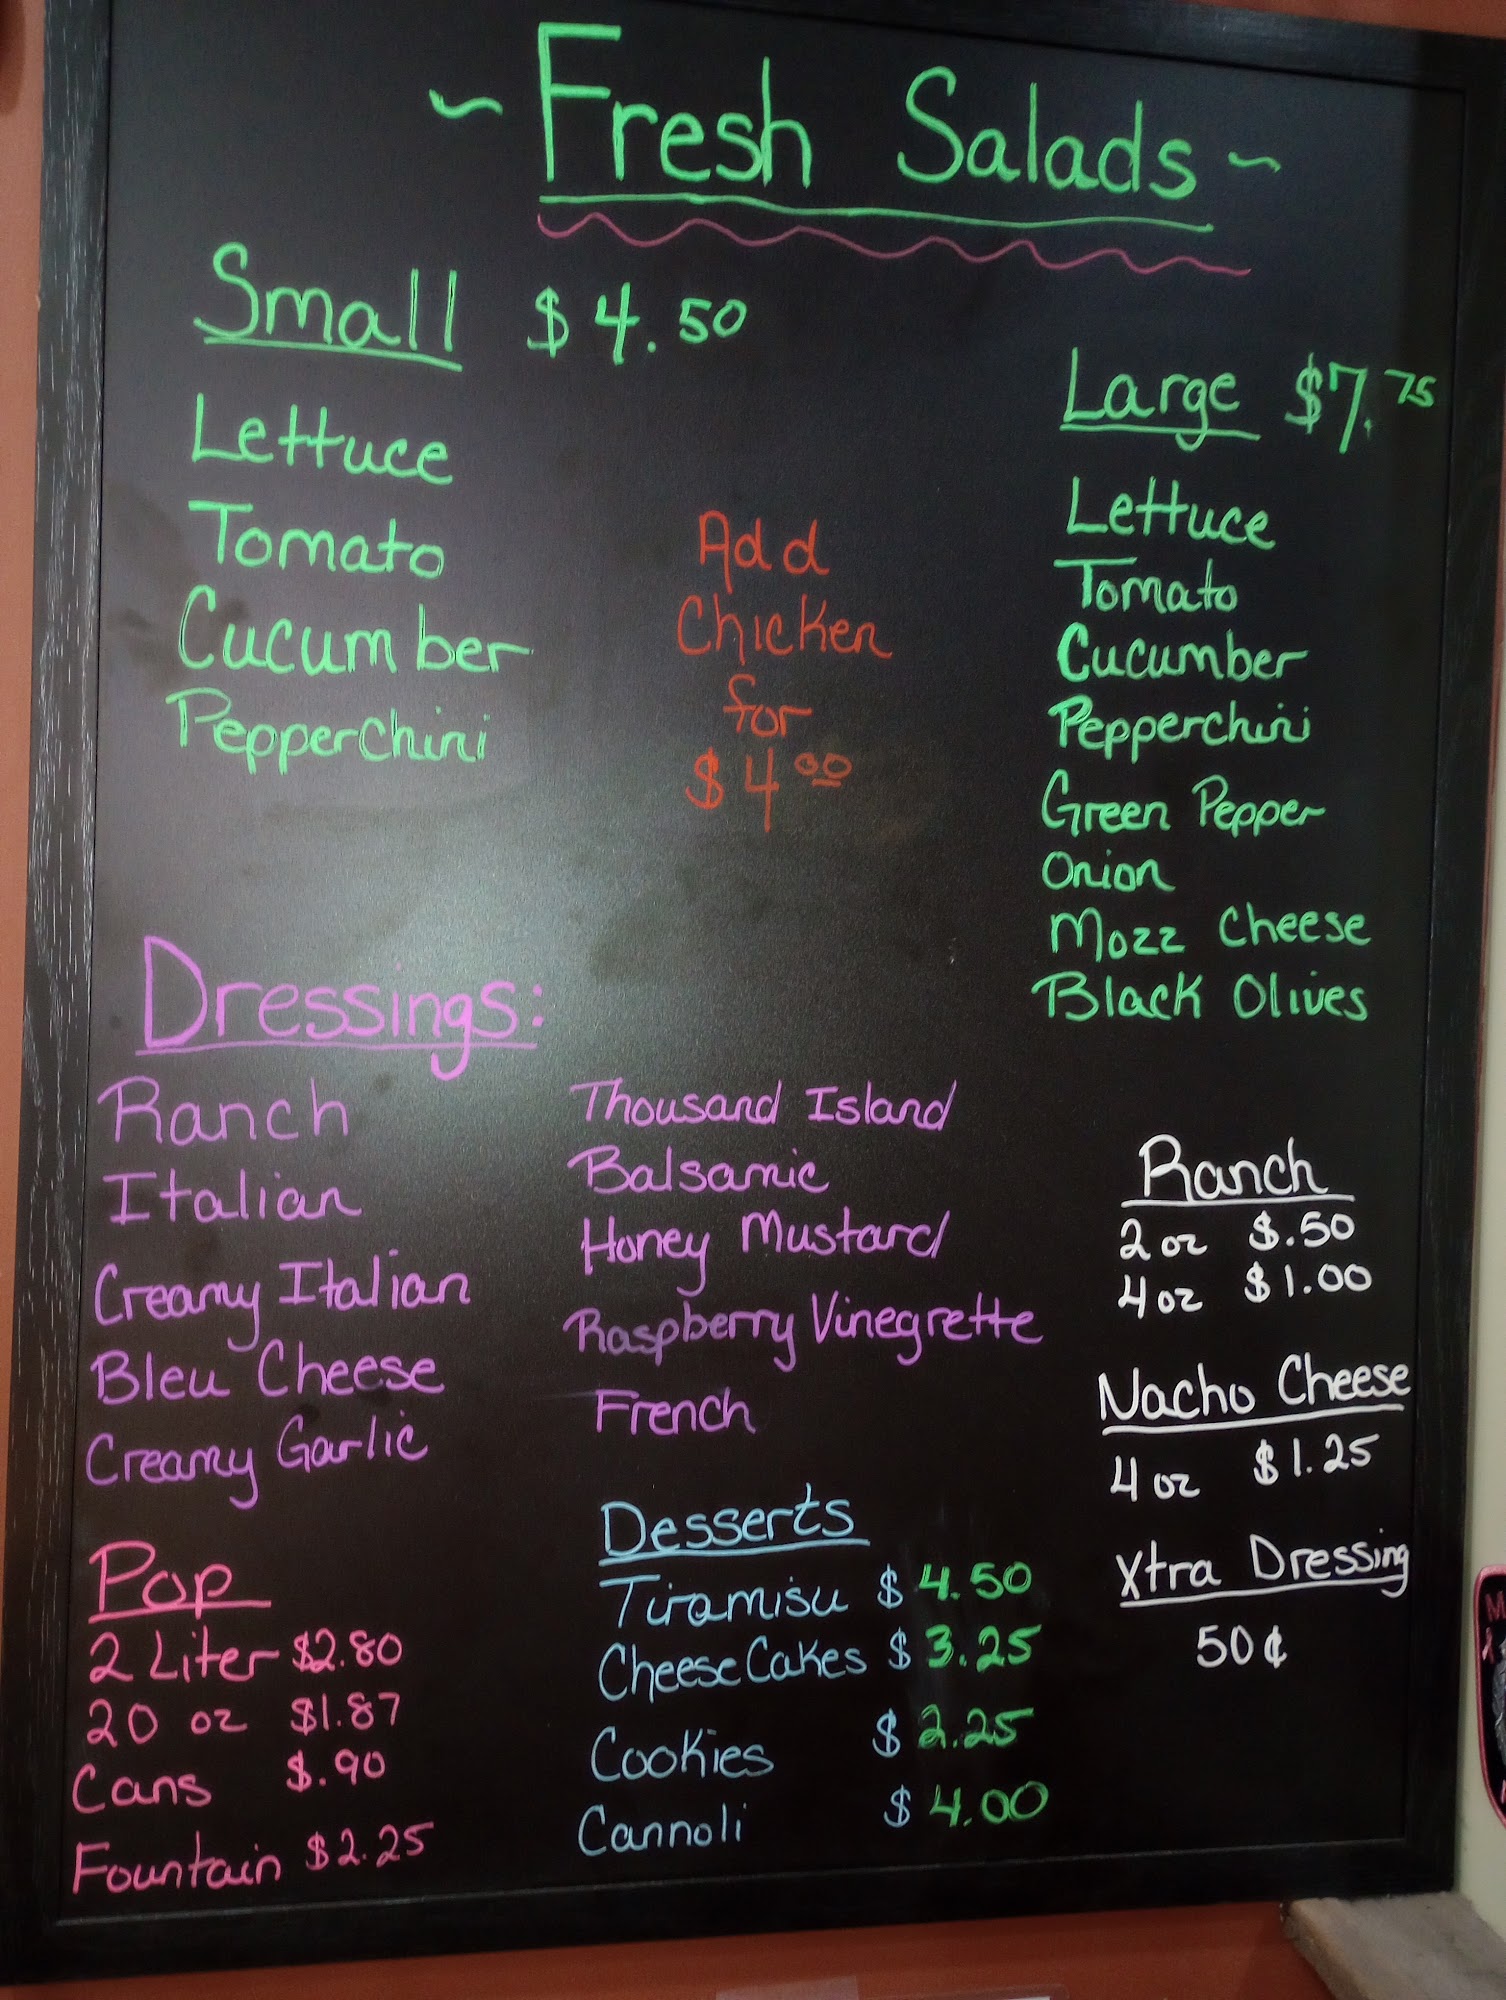 ~ Fresh Salads ~
Small $4.50
Lettuce
Tomato
Cucumber
Pepperchini
Add
Chicken
for
$4.00
Large $7.75
Lettuce
Tomato
Cucumber
Pepperchini
Green Pepper
Onion
Mozz Cheese
Black Olives
Dressings:
Ranch
Italian
Creamy Italian
Bleu Cheese
Creamy Garlic
Thousand Island
Balsamic
Honey Mustard
Raspberry Vinegrette
French
Ranch
2 oz $.50
4 oz $1.00
Nacho Cheese
4 oz $1.25
Xtra Dressing
50¢
Pop
2 Liter $2.80
20 oz $1.87
Cans $.90
Fountain $2.25
Desserts
Tiramisu $4.50
CheeseCakes $3.25
Cookies $2.25
Cannoli $4.00